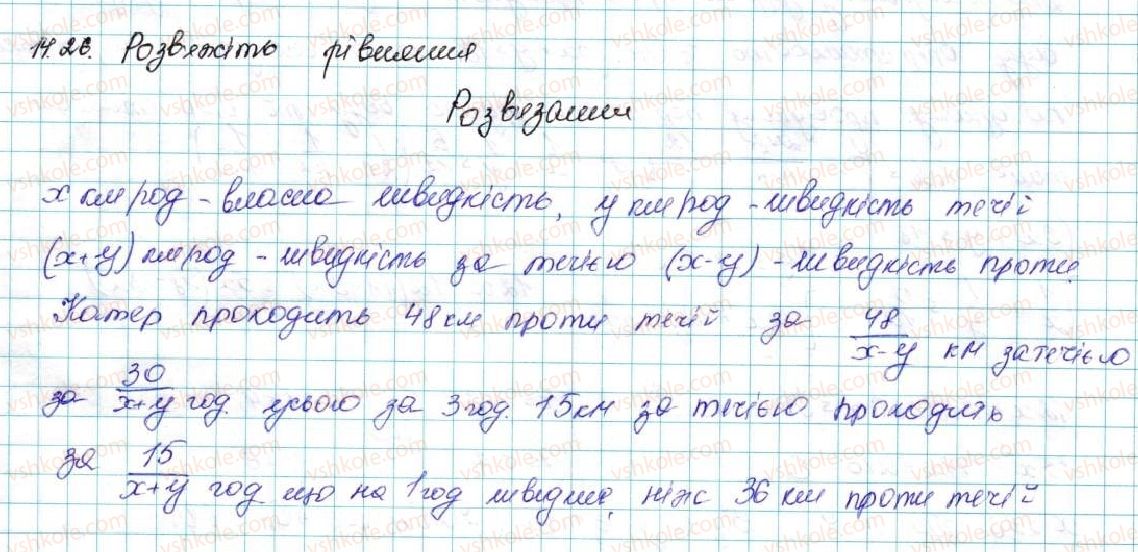 14.26. Розвяжіть рівняння
Розвязання
x км/год - власна швидкість, y км/год - швидкість течії
(x+y) км/год - швидкість за течією (x-y) - швидкість проти
Катер проходить 48 км проти течії за 48/(x-y) км за течією
за 30/(x+y) год. усього за 3 год. 15 км за течією проходить
за 15/(x+y) год що на 1 год швидше, ніж 36 км проти течії